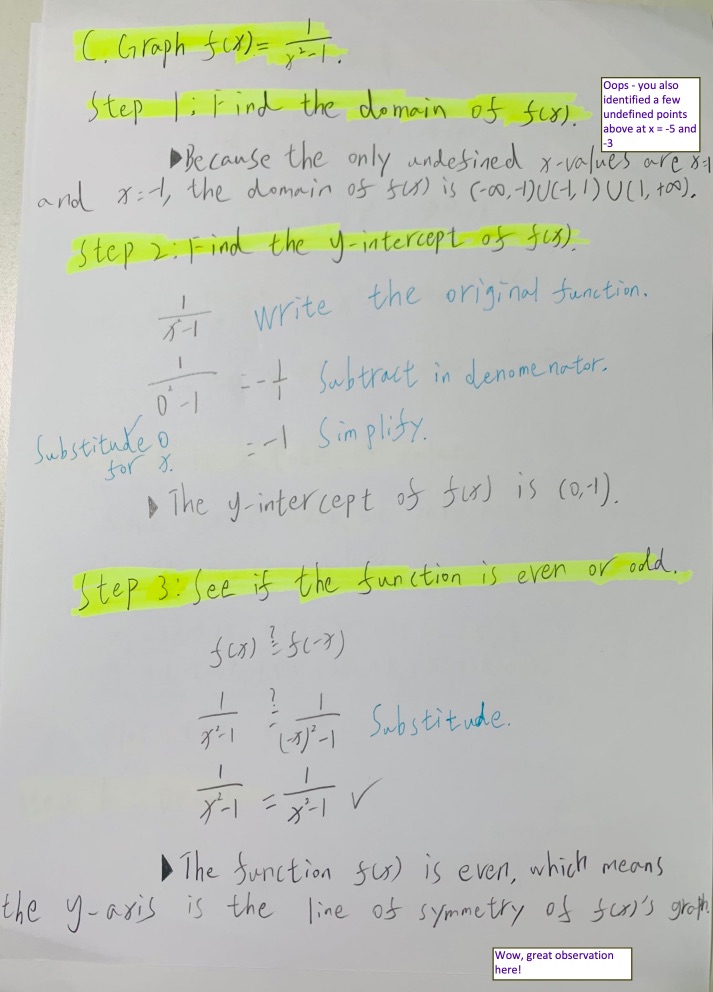 C. Graph f(x) = 1/x²-1.
Step 1: Find the domain of f(x).
Oops - you also
identified a few
undefined points
above at x = -5 and
-3
▶Because the only undefined x-values are x=1
and x=-1, the domain of f(x) is (-∞,-1)U(-1,1)U(1,+∞).
Step 2: Find the y-intercept of f(x).
1/x²-1 Write the original function.
1/0²-1 = -1/1 Subtract in denomenator.
Substitude 0
for x.
= -1 Simplify.
▶The y-intercept of f(x) is (0,-1).
Step 3: See if the function is even or odd.
f(x) ≟ f(-x)
1/x²-1 ≟ 1/(-x)²-1 Substitude.
1/x²-1 = 1/x²-1 ✓
▶The function f(x) is even, which means
the y-axis is the line of symmetry of f(x)'s graph.
Wow, great observation
here!